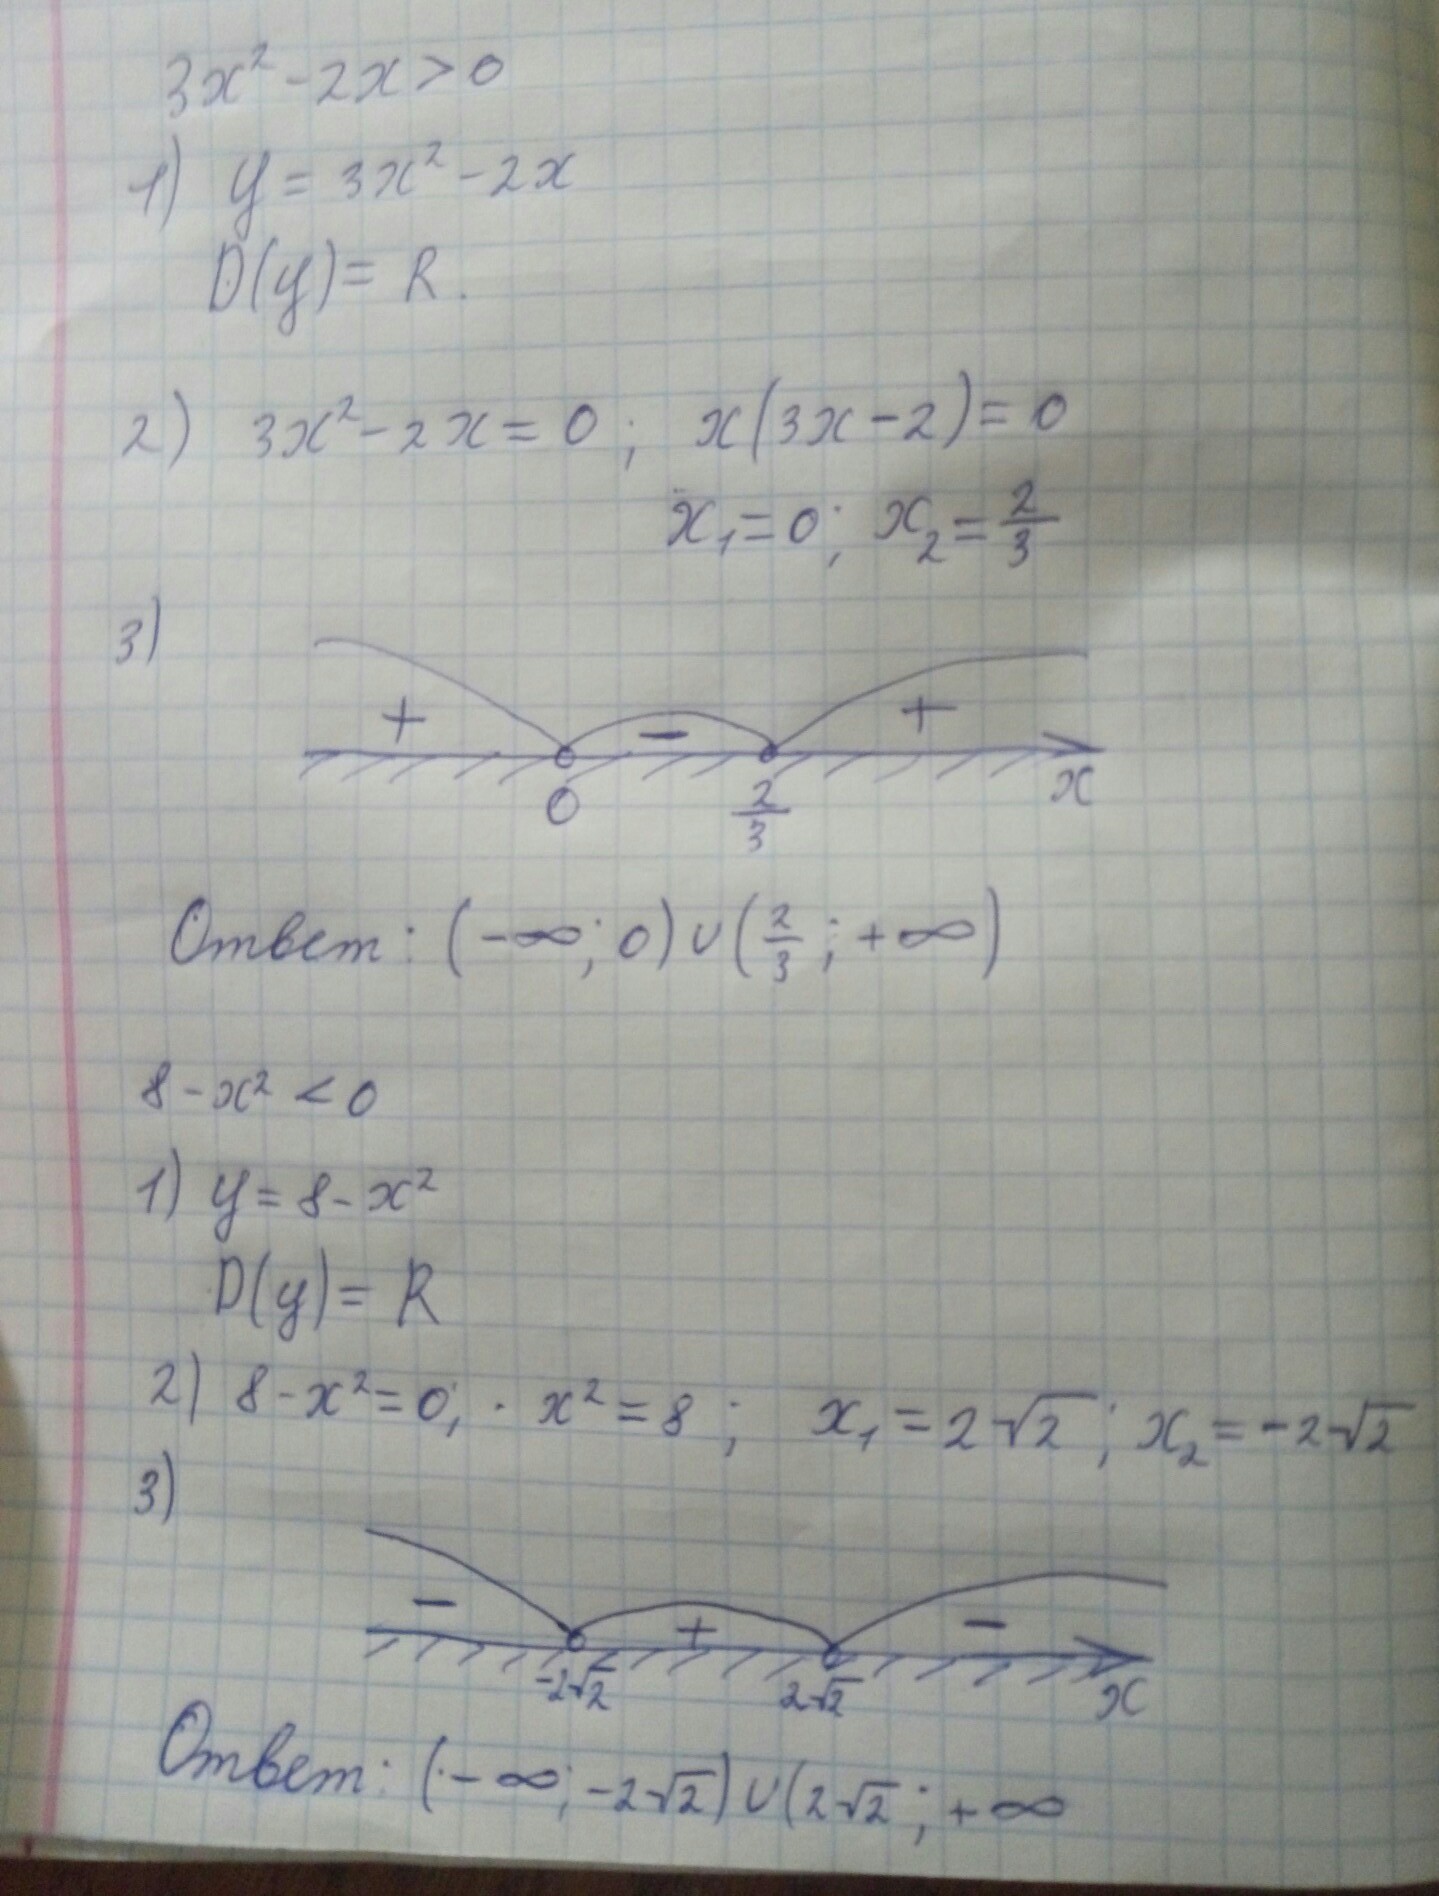 3x² - 2x > 0
1) y = 3x² - 2x
D(y) = R.
2) 3x² - 2x = 0 ; x(3x - 2) = 0
x₁ = 0; x₂ = 2/3
3)
+ - +
0 2/3 x
Ответ: (-∞; 0) ∪ (2/3; +∞)
8 - x² < 0
1) y = 8 - x²
D(y) = R
2) 8 - x² = 0; · x² = 8 ; x₁ = 2√2 ; x₂ = -2√2
3)
- + -
-2√2 2√2 x
Ответ: (-∞; -2√2) ∪ (2√2 ; +∞